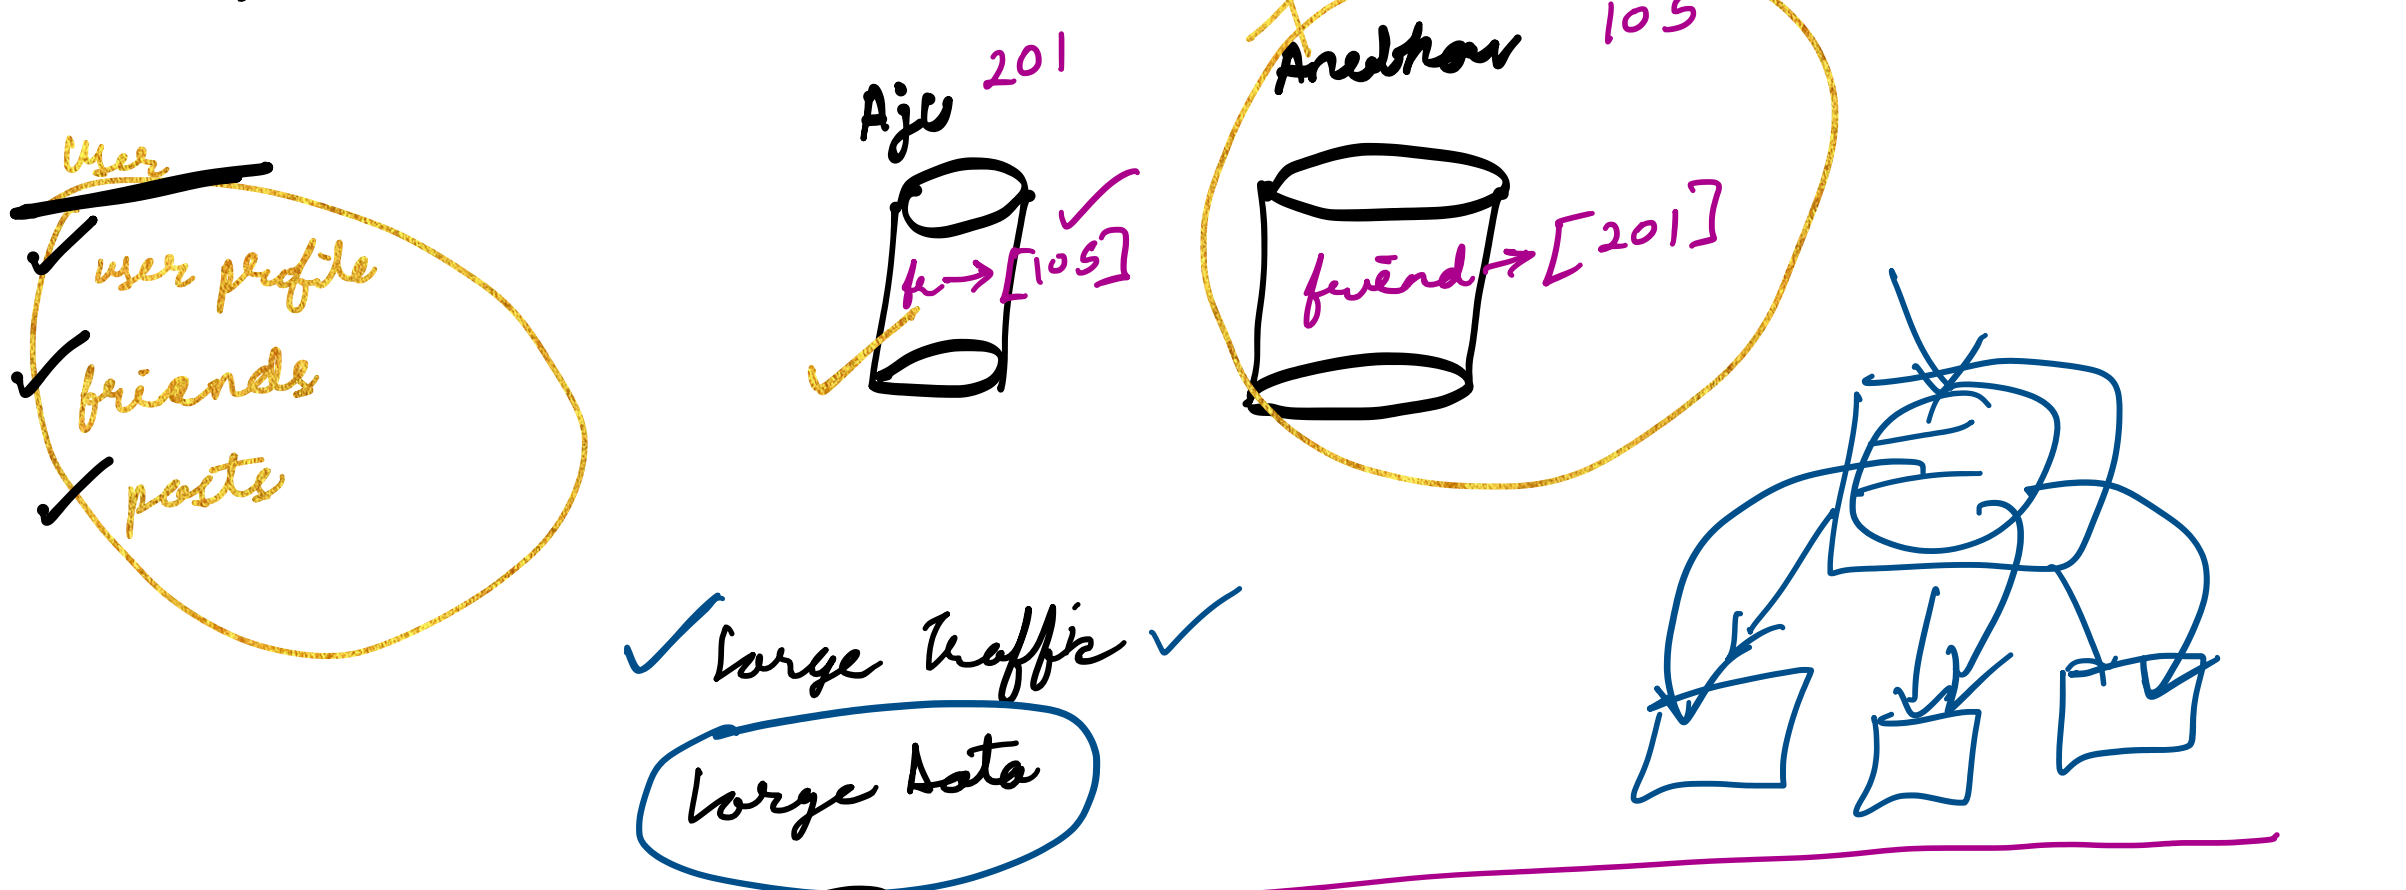 user
user profile
friends
posts
Aju 201
fr → [105] ✓
105
friend → [201]
Large Traffic
Large Data